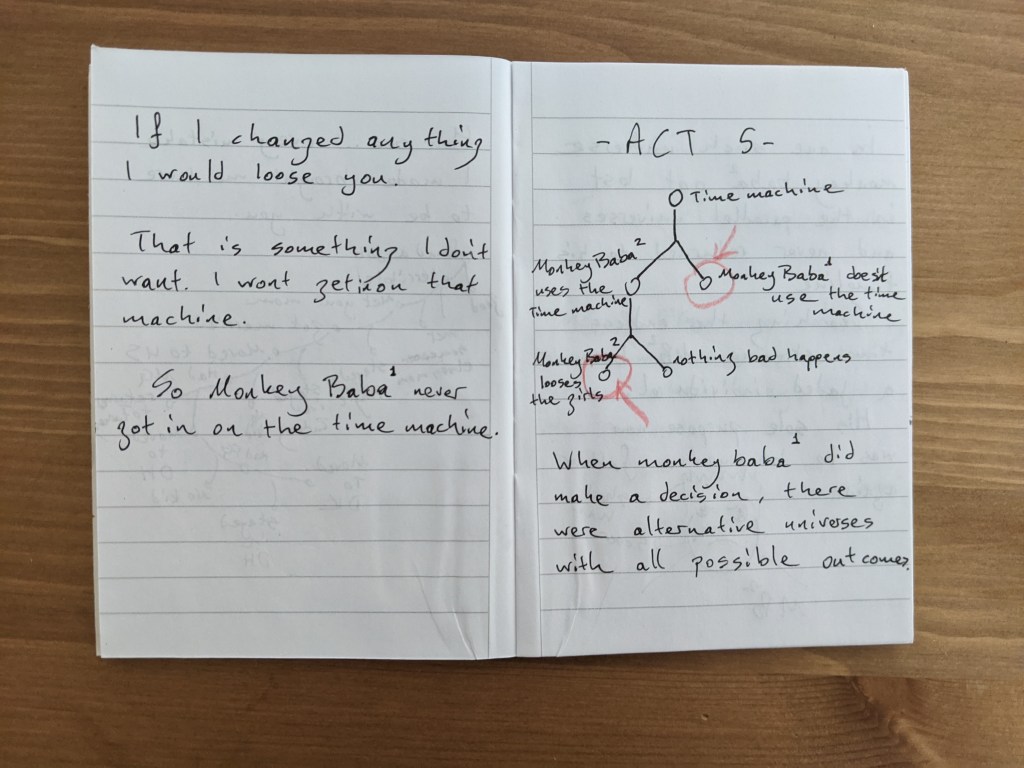 If I changed any thing
I would loose you.
That is something I don't
want. I wont get in on that
machine.
So Monkey Baba¹ never
got in on the time machine.
- ACT 5 -
Time machine
Monkey Baba²
uses the
Time machine
Monkey Baba¹ doest
use the time
machine
Monkey Baba²
looses
the girls
nothing bad happens
When monkey baba¹ did
make a decision, there
were alternative universes
with all possible outcomes.